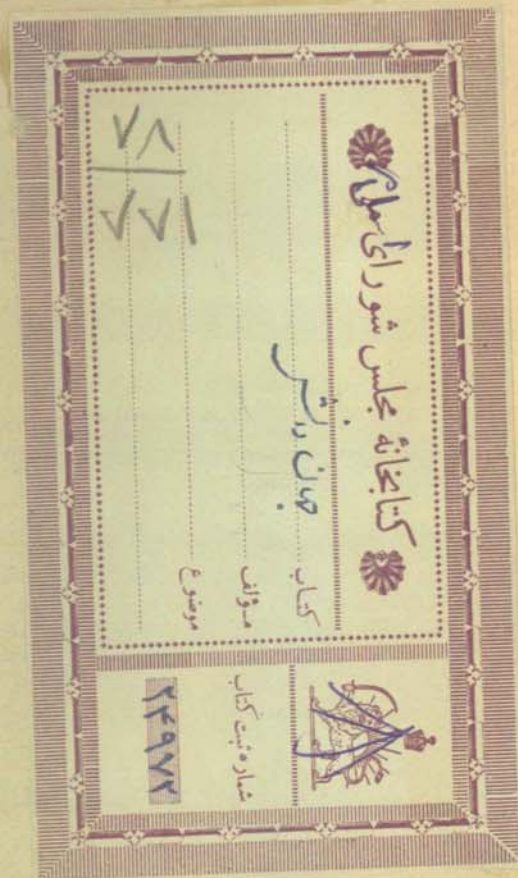 کتابخانهٔ مجلس شورای ملی
کتاب جهان دانش
مؤلف
موضوع
شماره ثبت کتاب
۲۴۹۷۲